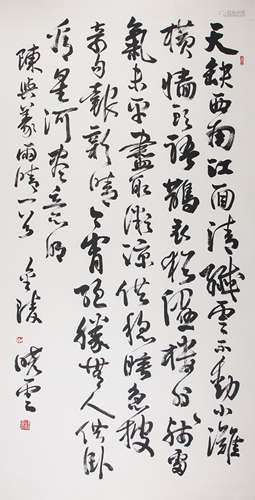 天缺西南江面清纖雲不動小灘
橫墻頭語鵲衣猶溼樓外殘雷
氣未平盡取微涼供穩睡急搜
奇句報新晴今宵絕勝無人供卧
看星河盡意明
陳與義雨晴一首 金陵 曉雲